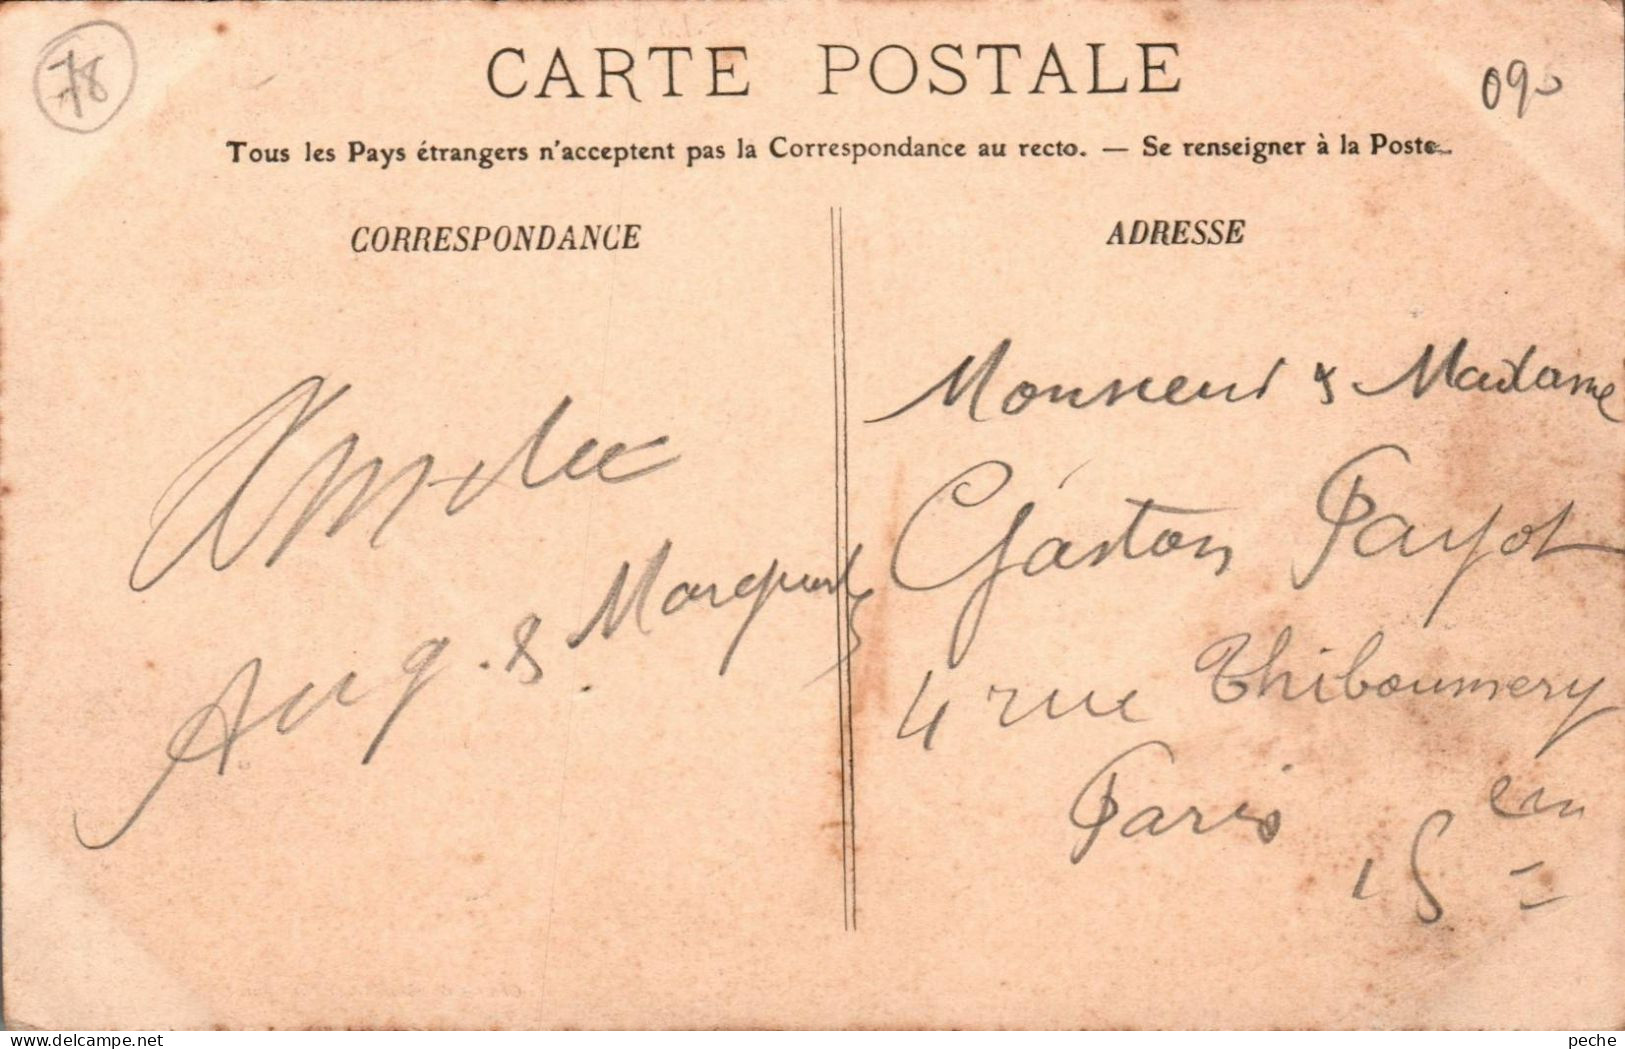 78
CARTE POSTALE
090
Tous les Pays étrangers n'acceptent pas la Correspondance au recto. — Se renseigner à la Poste.
CORRESPONDANCE
Aug. &
ADRESSE
Monsieur & Madame
Gaston Payot
4 rue Thiboumery
Paris
15 em
peche